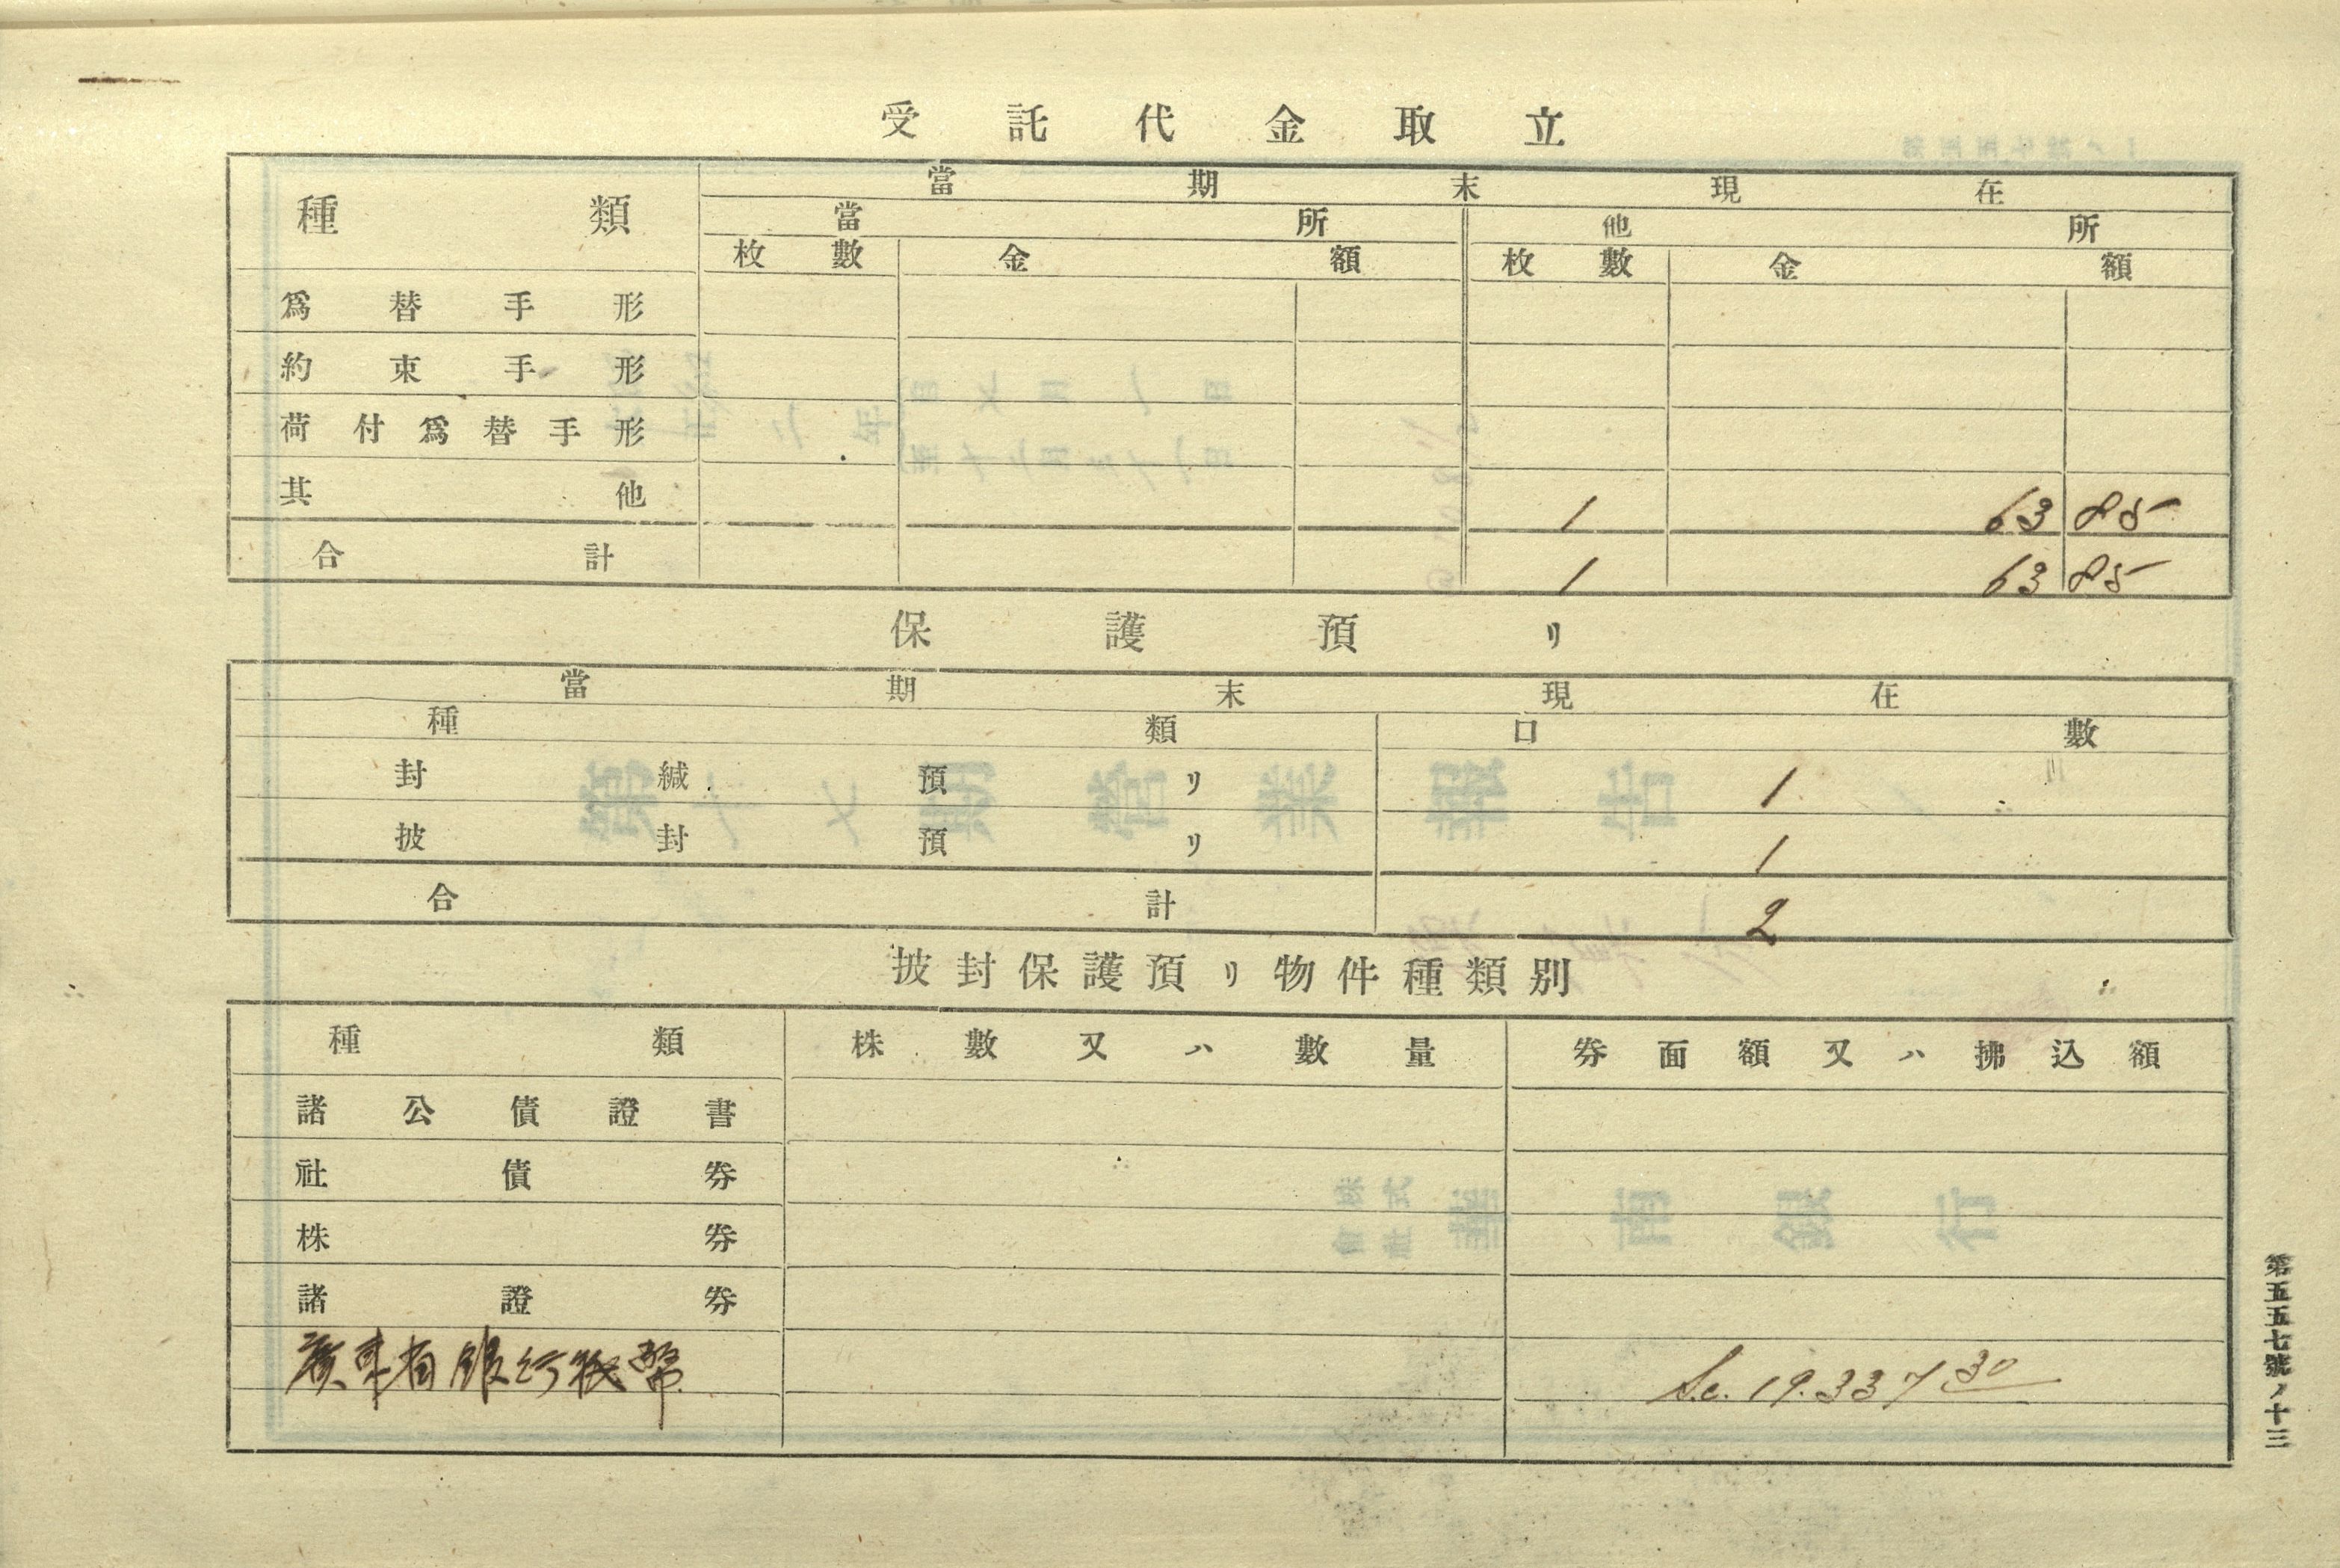 受託代金取立
種類 當期末現在
當所 他所
枚數 金額 枚數 金額
爲替手形
約束手形
荷付爲替手形
其他 1 63 85
合計 1 63 85
保護預リ
當期末現在
種類 口數
封緘預リ 1
披封預リ 1
合計 2
披封保護預リ物件種類別
種類 株數又ハ數量 券面額又ハ拂込額
諸公債證書
社債券
株券
諸證券
廣東省銀行紙幣 S.c. 19.337 30
第五五七號ノ十三